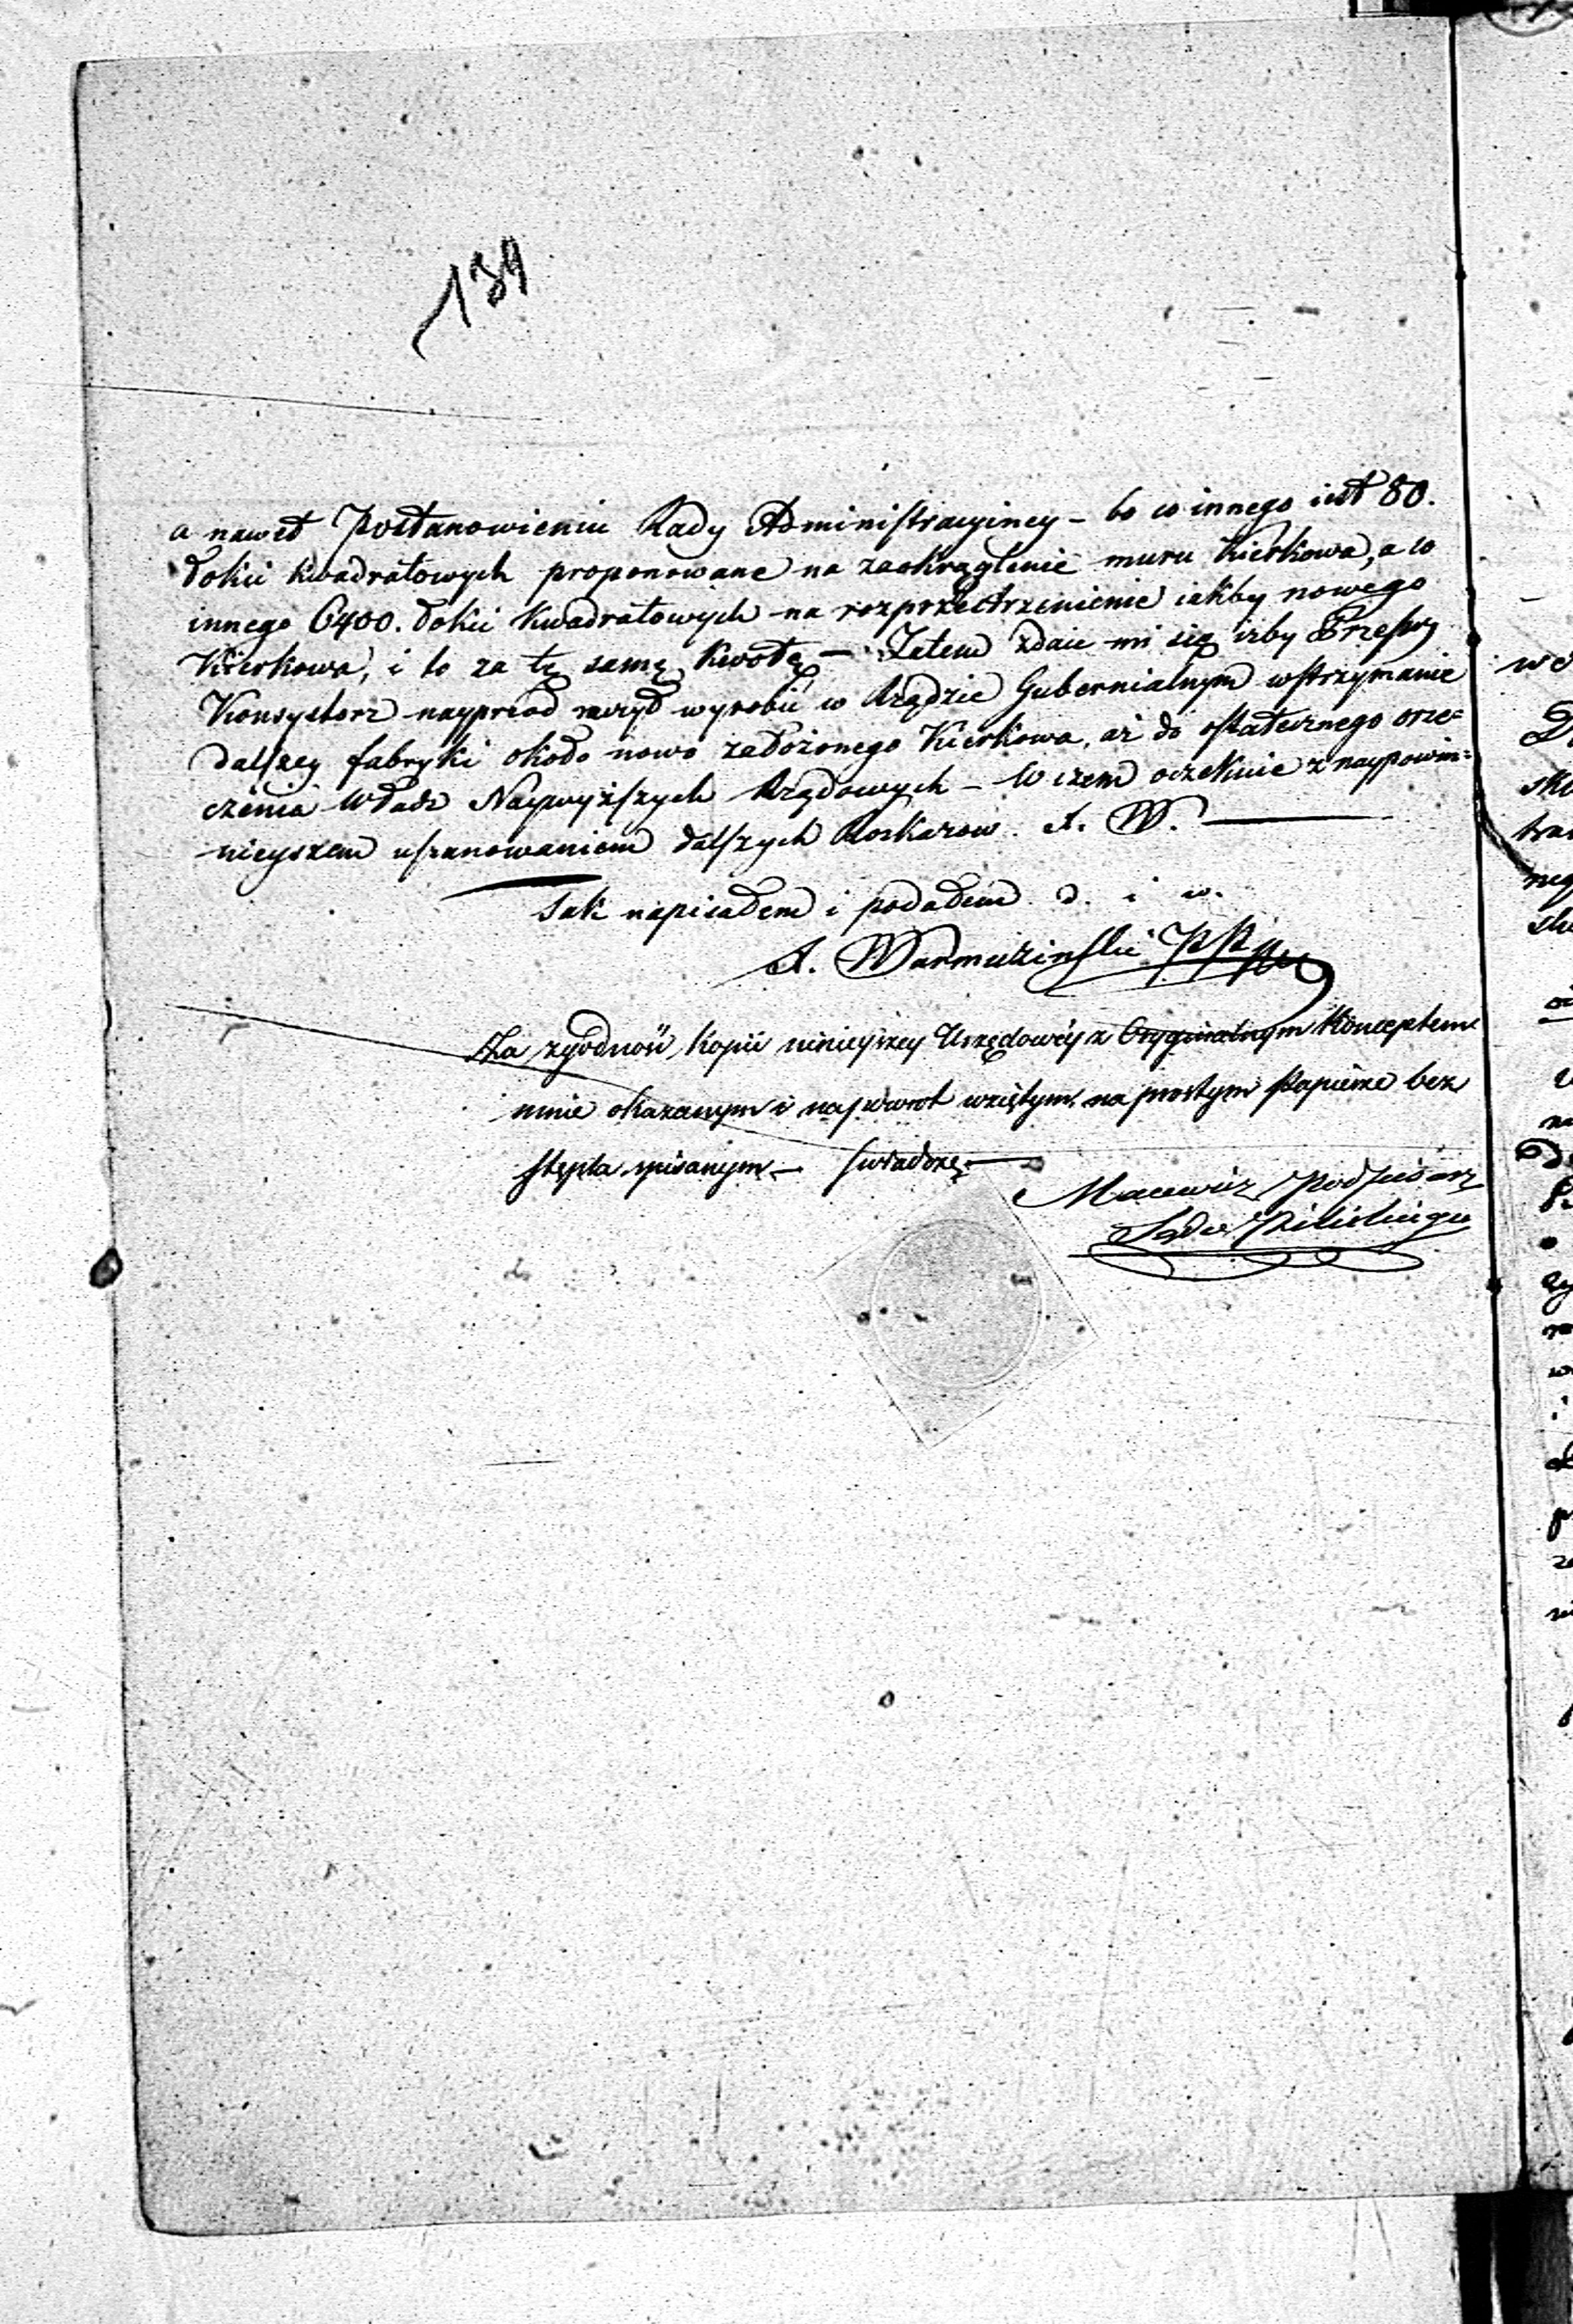 139
a nawet Postanowieniu Rady Administracyiney – bo co innego iest 80.
Łokci kwadratowych proponowane na zaokrąglenie muru Kierkowa, a co
innego 6400. Łokci kwadratowych na rozprzestrzenienie iakby nowego
Kierkowa, i to za tę samę kwotę – Zatem zdaie mi się iżby Prześwy
Konsystorz nayprzód raczył wyrobić w Rządzie Gubernialnym wstrzymanie
dalszey fabryki około nowo założonego Kierkowa, aż do ostatecznego orze=
czenia Władz Naywyższych Rządowych – W czem oczekuie z naypowin=
nieyszem uszanowaniem dalszych Roskazow. A. W.
Tak napisałem i podałem d. i w.
A. Warmuziński
Za zgodność Kopii ninieyszey Urzędowéy z Oryginalnym Konceptem
mnie okazanym i napowrot wziętym na prostym Papierze bez
stępla spisanym – świadczę. –
Podpisarz